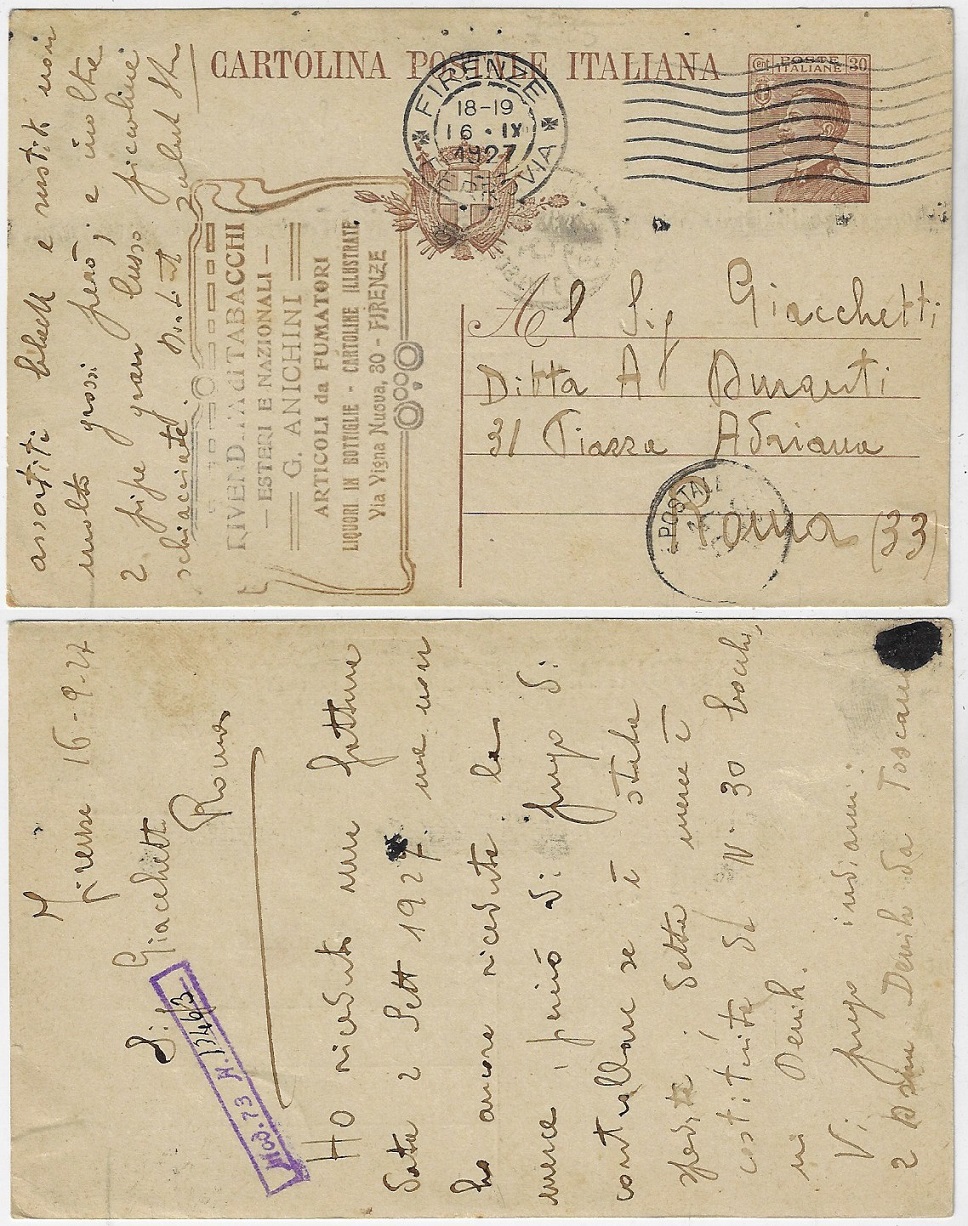 CARTOLINA POSTALE ITALIANA
Cent. POSTE ITALIANE 30
FIRENZE
18-19
16 · IX
1927
FERROVIA
RIVENDITA di TABACCHI
— ESTERI E NAZIONALI —
G. ANICHINI
ARTICOLI da FUMATORI
LIQUORI IN BOTTIGLIE - CARTOLINE ILLUSTRATE
Via Vigna Nuova, 30 - FIRENZE
Al Sig Giacchetti
Ditta A Duranti
31 Piazza Adriana
Roma (33)
POSTALE
Firenze 16-9-27
Sig Giacchetti
Roma
Mod. 73 N. 13463
Ho ricevuto una fattura
data 2 Sett 1927 ma non
ho ancora ricevuta la
merce, perciò di prego di
controllare se è stata
spedita. detta merce è
costituita da N. 30 bocchi,
in Denih.
Vi prego indiarmi:
2 Denih da Toscano
assortiti black e rustik non
molto grossi però; e inoltre
2 pipe gran lusso piccoline
schiacciate. Saluti